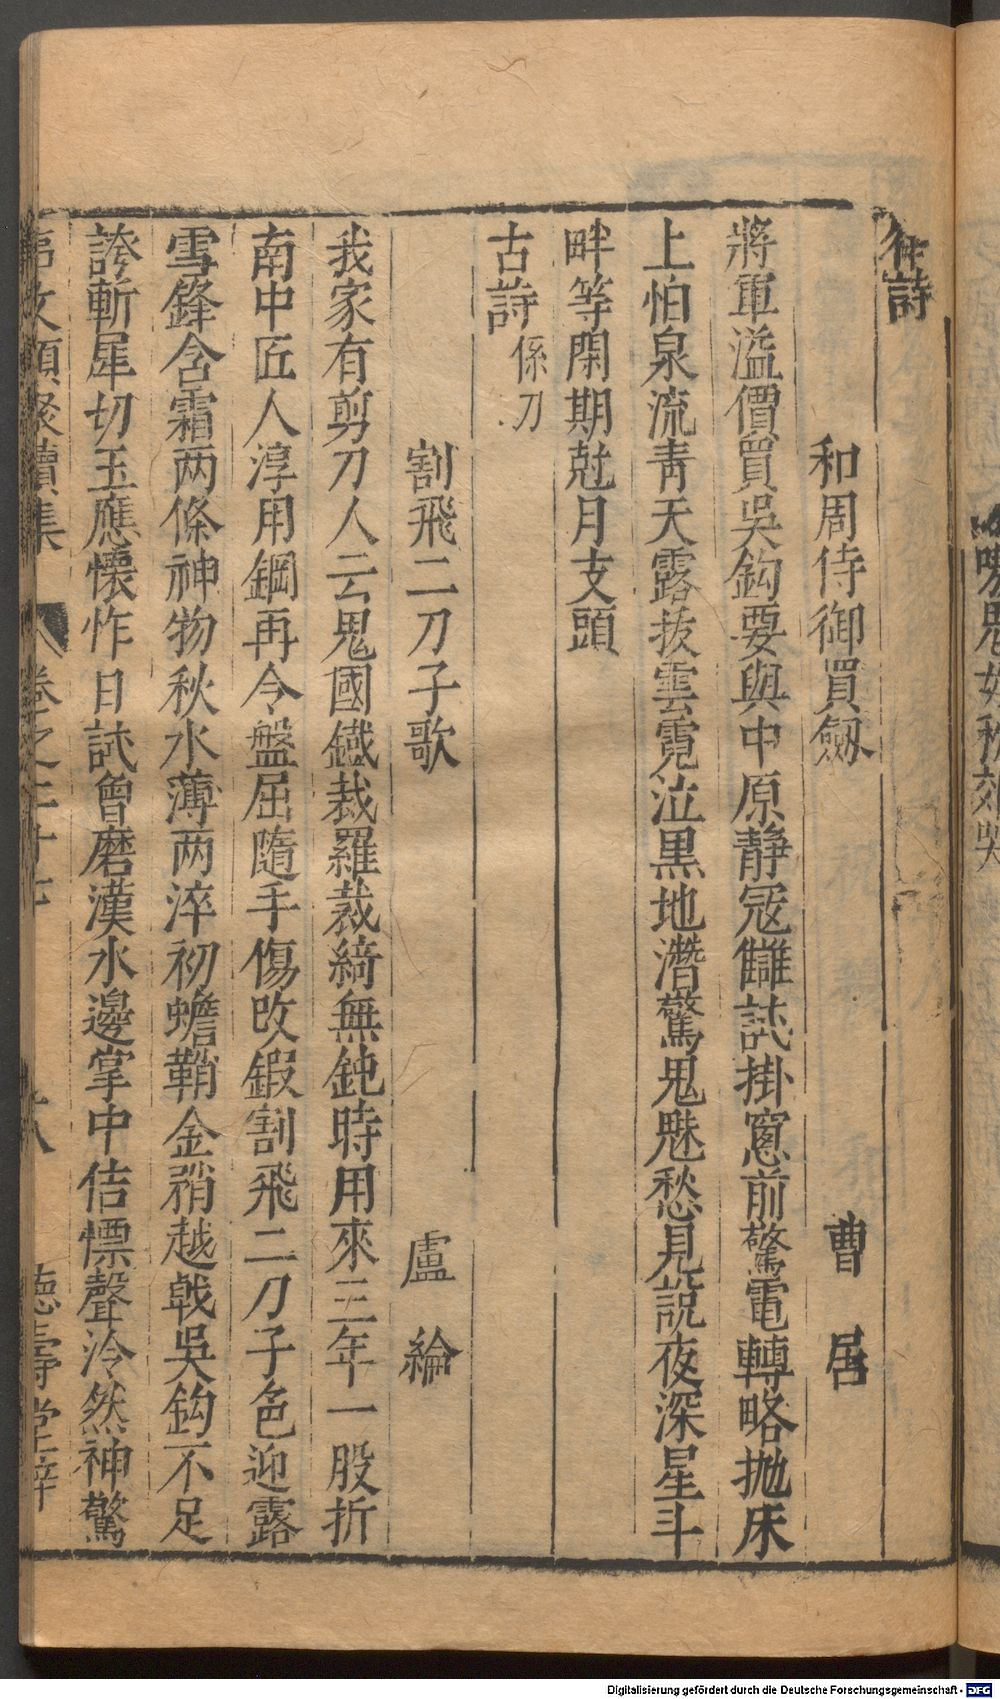 律詩
和周侍御買劔 曹唐
將軍溢價買吳鈎要與中原静冦讎試掛窻前驚電轉略抛床
上怕泉流青天露拔雲霓泣黒地潛驚鬼魅愁見說夜深星斗
畔等閑期尅月支頭
古詩 係刀
割飛二刀子歌 盧綸
我家有剪刀人云鬼國鐡裁羅裁綺無鈍時用來三年一股折
南中匠人淳用鋼再令盤屈隨手傷改鍜割飛二刀子色迎露
雪鋒含霜两條神物秋水薄两淬初蟾鞘金稍越戟吳鈎不足
誇斬犀切玉應懐怍日試曾磨漢水邊掌中佶慓聲泠然神驚
事文類聚續集 卷之二十七 十八 德壽堂梓
Digitalisierung gefördert durch die Deutsche Forschungsgemeinschaft - DFG